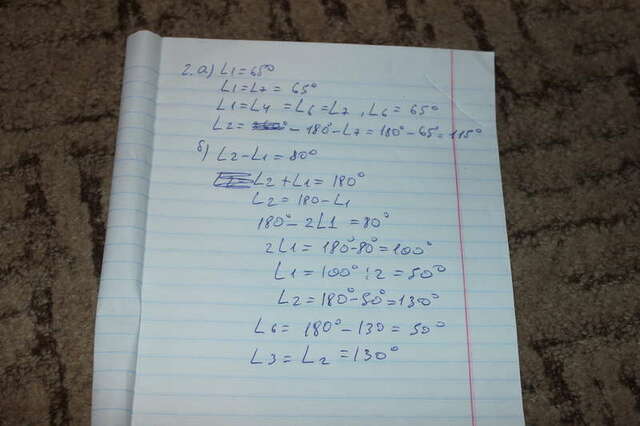 2. а) ∠1 = 65°
∠1 = ∠7 = 65°
∠1 = ∠4 = ∠6 = ∠7, ∠6 = 65°
∠2 = - 180° - ∠7 = 180° - 65° = 115°
б) ∠2 - ∠1 = 80°
∠2 + ∠1 = 180°
∠2 = 180 - ∠1
180° - 2∠1 = 80°
2∠1 = 180° - 80° = 100°
∠1 = 100° : 2 = 50°
∠2 = 180° - 50° = 130°
∠6 = 180° - 130 = 50°
∠3 = ∠2 = 130°